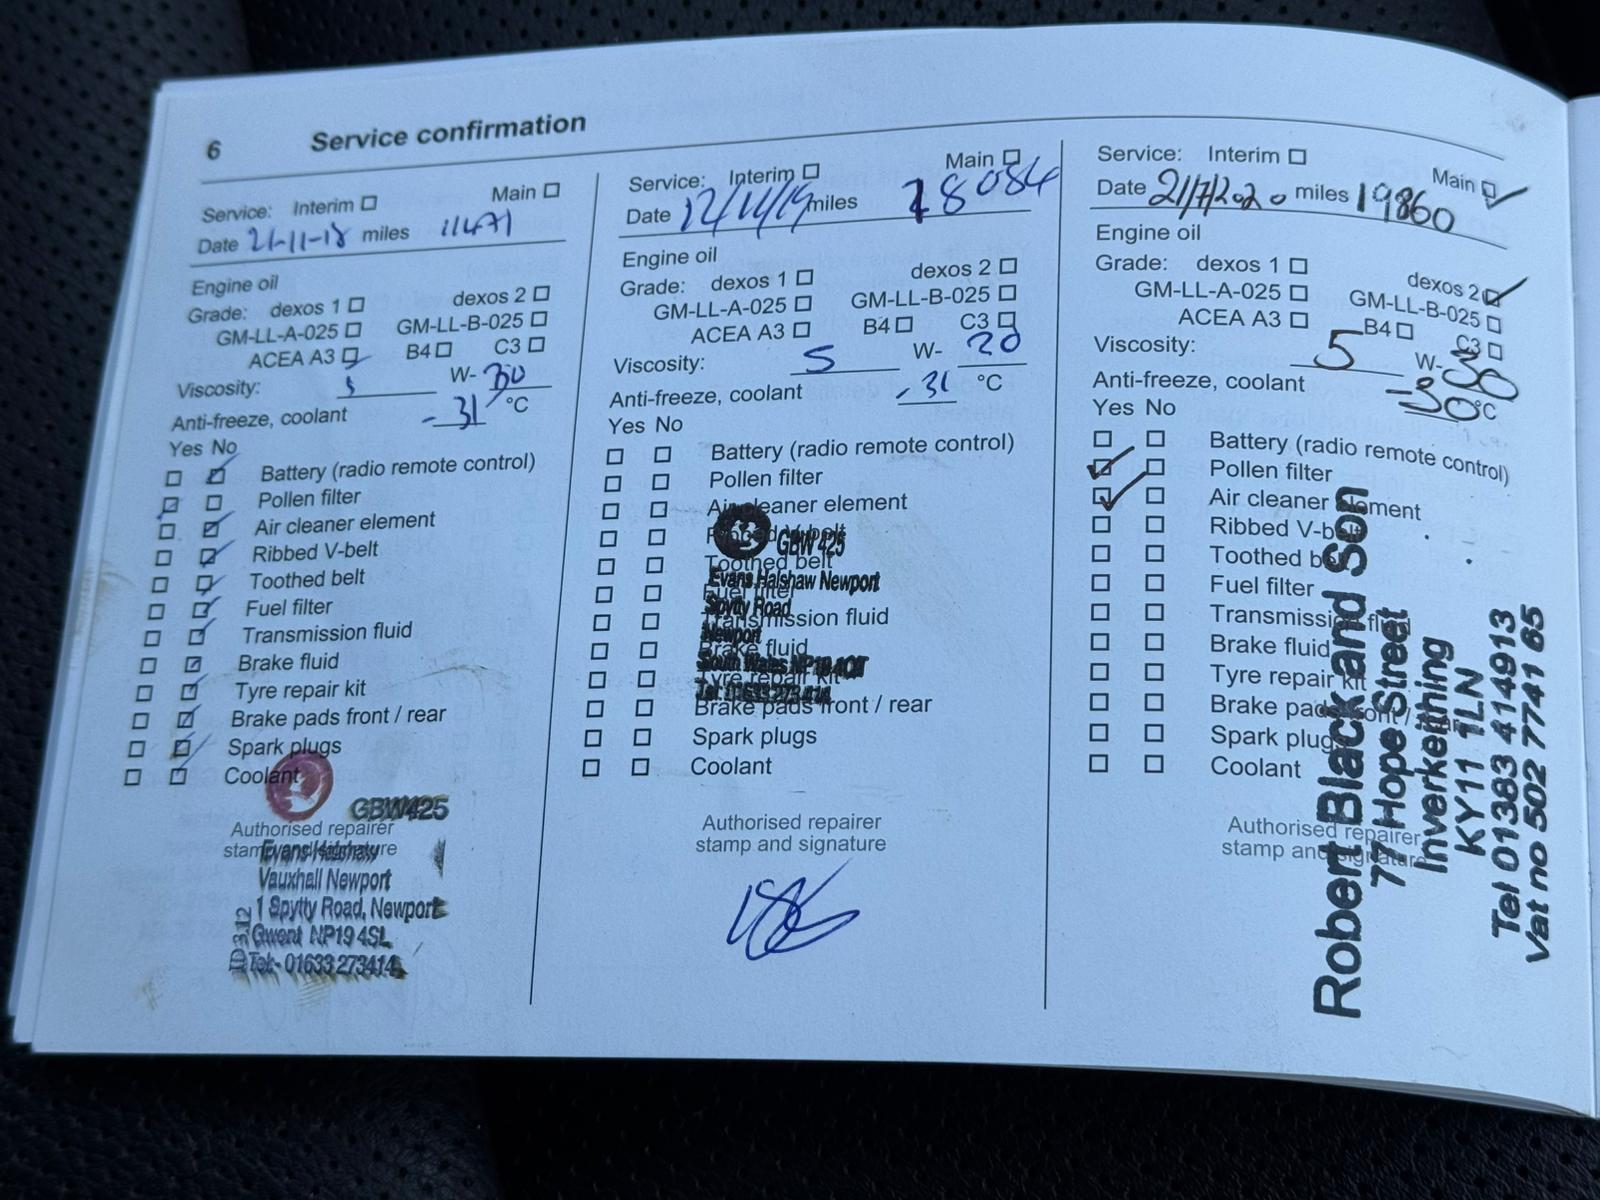 6 Service confirmation
Service: Interim Main
Date 21-11-18 miles 11471
Engine oil
Grade: dexos 1 dexos 2
GM-LL-A-025 GM-LL-B-025
ACEA A3 B4 C3
Viscosity: 5 W- 30
Anti-freeze, coolant -31 °C
Yes No
Battery (radio remote control)
Pollen filter
Air cleaner element
Ribbed V-belt
Toothed belt
Fuel filter
Transmission fluid
Brake fluid
Tyre repair kit
Brake pads front / rear
Spark plugs
Coolant
GBW425
Authorised repairer
stamp and signature
Evans Halshaw
Vauxhall Newport
1 Spytty Road, Newport
Gwent NP19 4SL
Tel:- 01633 273414
Service: Interim Main
Date 12/11/19 miles 18084
Engine oil
Grade: dexos 1 dexos 2
GM-LL-A-025 GM-LL-B-025
ACEA A3 B4 C3
Viscosity: 5 W- 20
Anti-freeze, coolant -31 °C
Yes No
Battery (radio remote control)
Pollen filter
Air cleaner element
Ribbed V-belt
GBW 425
Toothed belt
Evans Halshaw Newport
Fuel filter
Spytty Road
Transmission fluid
Newport
Brake fluid
South Wales NP19 4QT
Tyre repair kit
Tel: 01633 273414
Brake pads front / rear
Spark plugs
Coolant
Authorised repairer
stamp and signature
Service: Interim Main
Date 21/7/2020 miles 19860
Engine oil
Grade: dexos 1 dexos 2
GM-LL-A-025 GM-LL-B-025
ACEA A3 B4 C3
Viscosity: 5 W- 30
Anti-freeze, coolant -30 °C
Yes No
Battery (radio remote control)
Pollen filter
Air cleaner element
Ribbed V-belt
Toothed belt
Fuel filter
Transmission fluid
Brake fluid
Tyre repair kit
Brake pads front / rear
Spark plugs
Coolant
Authorised repairer
stamp and signature
Robert Black and Son
77 Hope Street
Inverkeithing
KY11 1LN
Tel 01383 414913
Vat no 502 7741 65